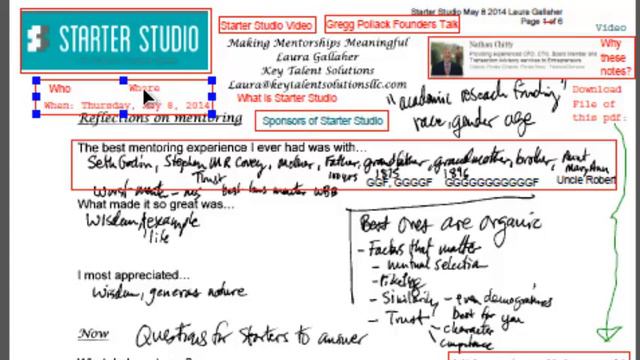 Starter Studio May 8 2014 Laura Gallaher
Page 1 of 6
STARTER STUDIO
Starter Studio Video
Gregg Pollack Founders Talk
Video
Making Mentorships Meaningful
Laura Gallaher
Key Talent Solutions
Laura@keytalentsolutionsllc.com
Nathan Chitty
Providing experienced CFO, CTO, Board Member and
Transaction Advisory services to Entrepreneurs
Why
these
notes?
Who
Where
When: Thursday, May 8, 2014
What is Starter Studio
Download
File of
this pdf:
"academic research funding"
race gender age
Reflections on mentoring
Sponsors of Starter Studio
The best mentoring experience I ever had was with...
Seth Godin, Stephen M R Covey, mother, Father, grandfather, grandmother, brother, Aunt
MaryAnn
Trust
100yrs
1875
1896
GGF, GGGGF
GGGGGGGGGGGF
Uncle Robert
best boss mentor WBB
What made it so great was...
Wisdom, example
life
Best ones are organic
- Factors that matter
- mutual selection
- liking
- Similarity - even demographics
- Trust
best for you
- character
- competence
I most appreciated...
Wisdom, generous nature
Now
Questions for Starters to answer